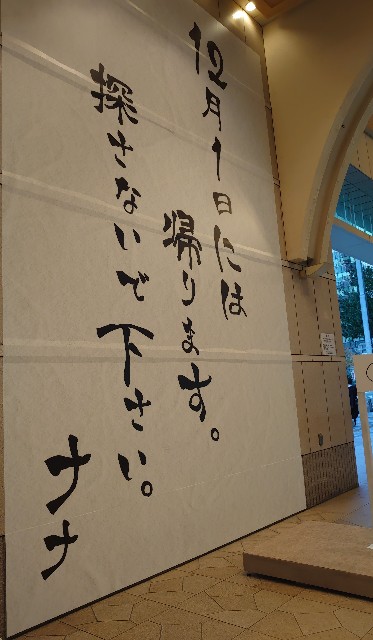 12月1日には
帰ります。
探さないで下さい。
ナナ